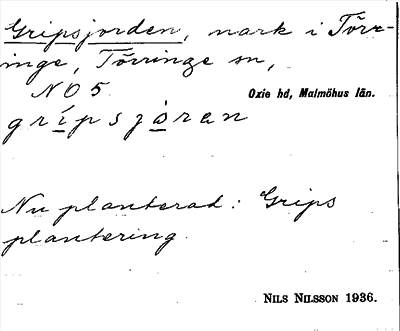 Gripsjorden, mark i Törr-
inge, Törringe sn,
NO5 Oxie hd, Malmöhus län.
gripsjoren
Nu planterad: Grips
plantering
NILS NILSSON 1936.